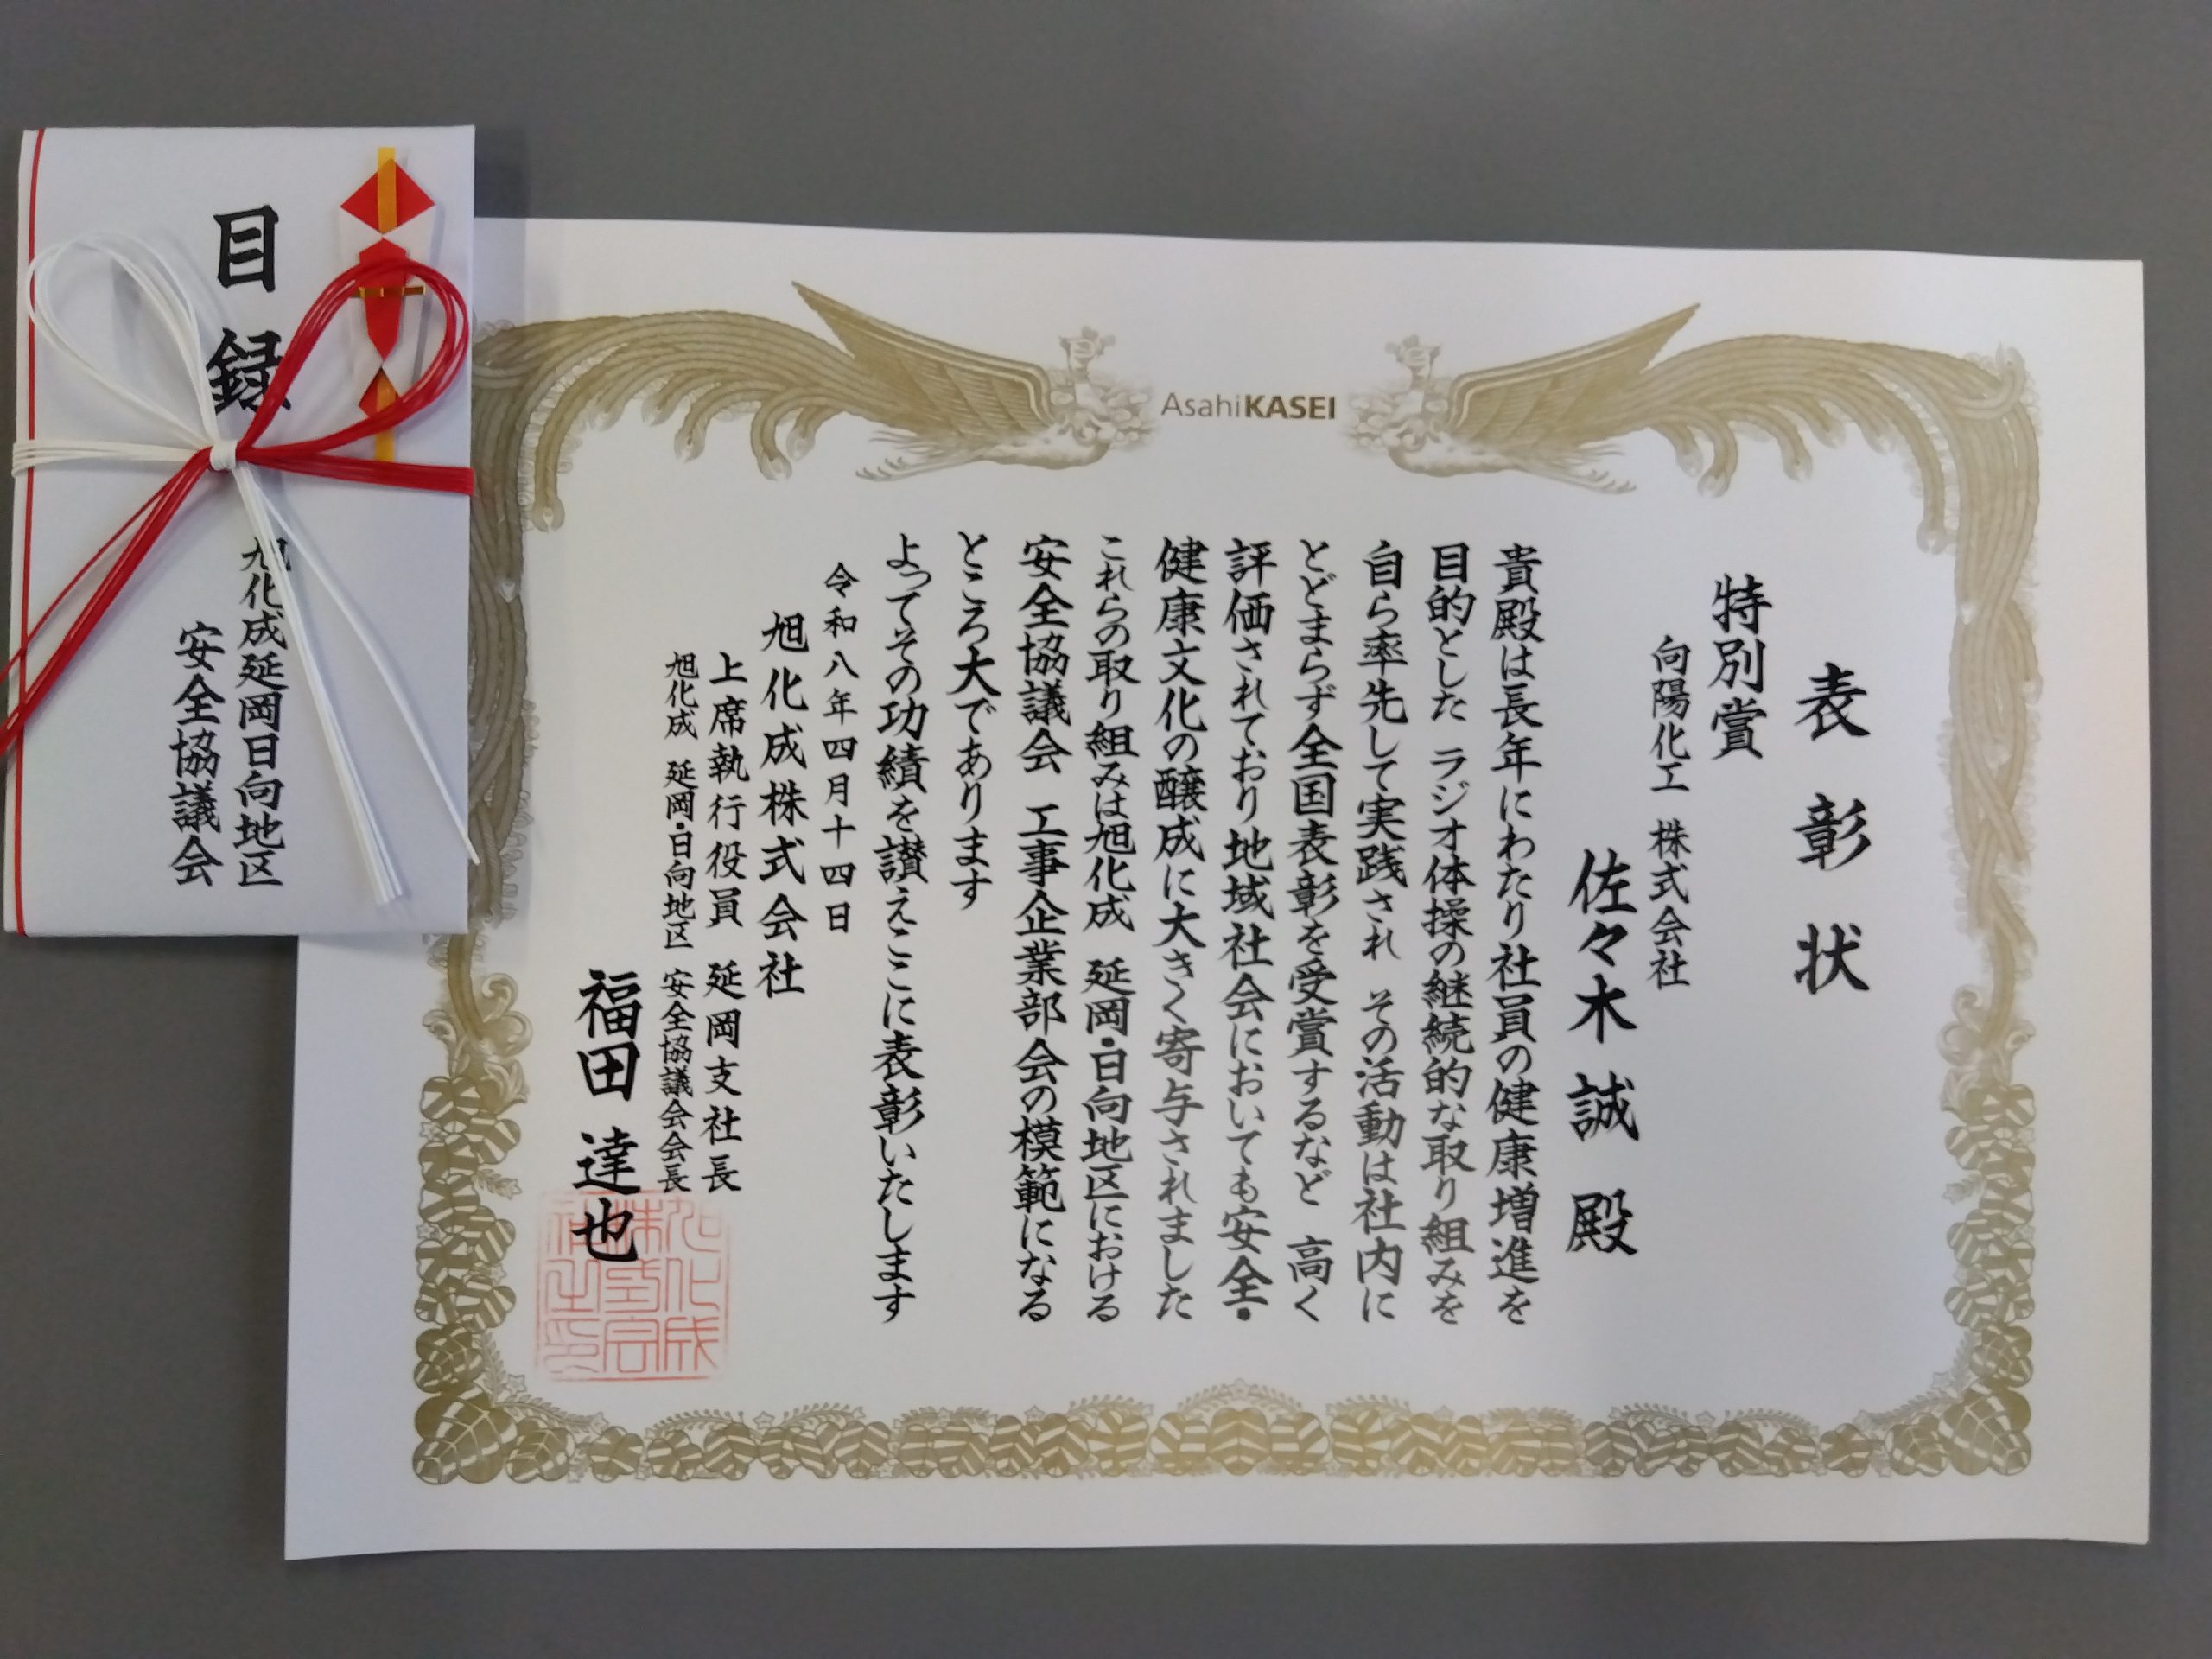 AsahiKASEI
表彰状
特別賞
向陽化工 株式会社
佐々木 誠 殿
貴殿は長年にわたり社員の健康増進を
目的とした ラジオ体操の継続的な取り組みを
自ら率先して実践され その活動は社内に
とどまらず全国表彰を受賞するなど 高く
評価されており地域社会においても安全・
健康文化の醸成に大きく寄与されました
これらの取り組みは旭化成 延岡・日向地区における
安全協議会 工事企業部会の模範になる
ところ大であります
よってその功績を讃えここに表彰いたします
令和八年四月十四日
旭化成株式会社
上席執行役員 延岡支社長
旭化成 延岡・日向地区 安全協議会会長
福田 達也
旭化成株式会社之印
目録
旭化成延岡日向地区
安全協議会